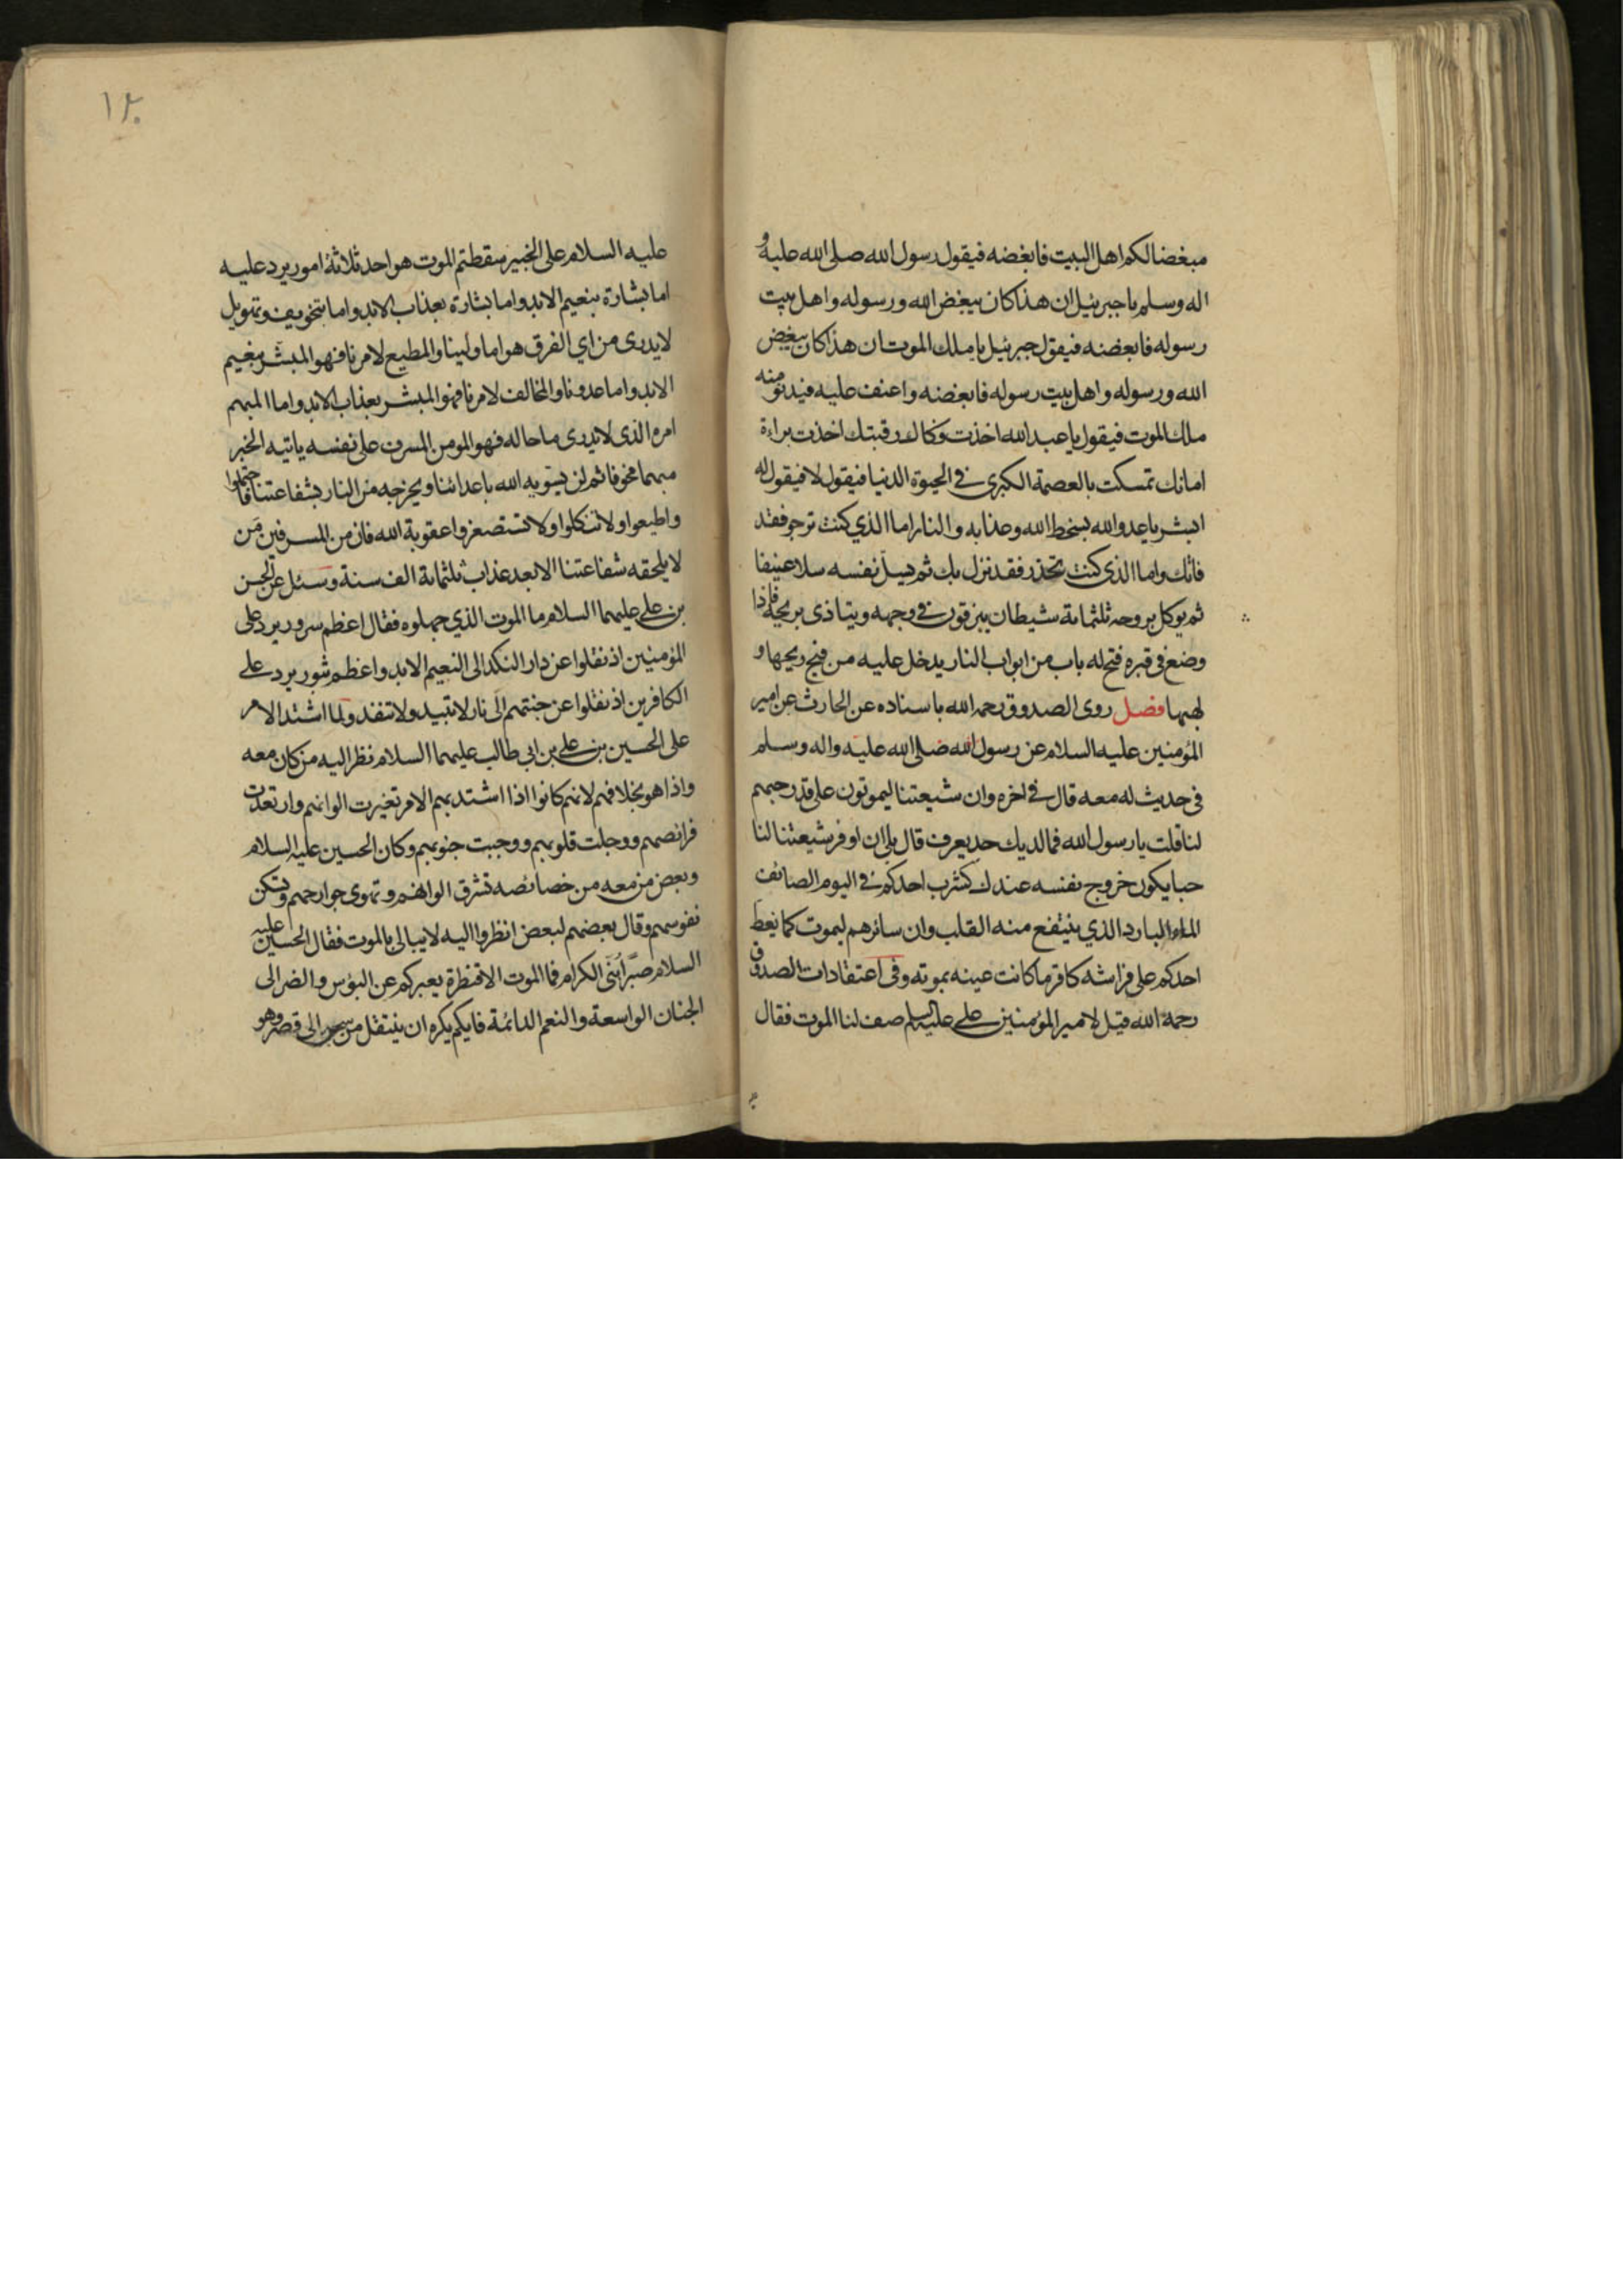 مبغضا لكم اهل البيت فابغضه فيقول رسول الله صلى الله عليه و
اله وسلم يا جبرئيل ان هذا كان يبغض الله ورسوله واهل بيت
رسوله فابغضه فيقول جبرئيل يا ملك الموت ان هذا كان يبغض
الله ورسوله واهل بيت رسوله فابغضه واعنف عليه فيدنو منه
ملك الموت فيقول يا عبد الله اخذت فكاك رقبتك اخذت براءة
امانك تمسكت بالعصمة الكبرى في الحيوة الدنيا فيقول لا فيقول له
ابشر يا عدو الله بسخط الله وعذابه والنار اما الذي كنت ترجو فقد
فاتك واما الذي كنت تحذر فقد نزل بك ثم يسل نفسه سلا عنيفا
ثم يوكل بروحه ثلثمائة شيطان يبزقون في وجهه ويتاذى بريحه فاذا
وضع في قبره فتح له باب من ابواب النار يدخل عليه من فيح ريحها و
لهبها فصل روى الصدوق رحمه الله باسناده عن الحارث عن امير
المؤمنين عليه السلام عن رسول الله صلى الله عليه واله وسلم
في حديث له معه قال في اخره وان شيعتنا ليموتون على قدر حبهم
لنا قلت يا رسول الله فما لذيك حد يعرف قال بلى ان اوفر شيعتنا لنا
حبا يكون خروج نفسه عندك كشرب احدكم في اليوم الصائف
الماء البارد الذي ينتفع منه القلب وان سائرهم ليموت كما يغط
احدكم على فراشه كاقر ما كانت عينه بموته وفي اعتقادات الصدوق
رحمه الله قيل لامير المؤمنين علي عليه السلم صف لنا الموت فقال
١٢٠
عليه السلام على الخبير سقطتم الموت هو احد ثلاثة امور يرد عليه
اما بشارة بنعيم الابد واما بشارة بعذاب الابد واما بتخويف وتهويل
لا يدرى من اي الفرق هو اما ولينا والمطيع لامرنا فهو المبشر بنعيم
الابد واما عدونا والمخالف لامرنا فهو المبشر بعذاب الابد واما المبهم
امره الذي لا يدرى ما حاله فهو المومن المسرف على نفسه ياتيه الخبر
مبهما مخوفا ثم لن يسويه الله باعدائنا ويخرجه من النار بشفاعتنا فاحتملوا
واطيعوا ولا تتكلوا ولا تستصغروا عقوبة الله فان من المسرفين من
لا يلحقه شفاعتنا الا بعد عذاب ثلثمائة الف سنة وسئل عن الحسن
بن علي عليهما السلام ما الموت الذي جهلوه فقال اعظم سرور يرد على
المؤمنين اذ نقلوا عن دار النكد الى النعيم الابد واعظم ثبور يرد على
الكافرين اذ نقلوا عن جنتهم الى نار لا تبيد ولا تنفد ولما اشتد الامر
على الحسين بن علي بن ابي طالب عليهما السلام نظر اليه من كان معه
واذا هو بخلافهم لانهم كانوا اذا اشتد بهم الامر تغيرت الوانهم وارتعدت
فرائصهم ووجلت قلوبهم ووجبت جنوبهم وكان الحسين عليه السلام
وبعض من معه من خصائصه تشرق الوانهم وتهوى جوارحهم وتسكن
نفوسهم وقال بعضهم لبعض انظروا اليه لا يبالى بالموت فقال الحسين عليه
السلام صبرا بني الكرام فما الموت الا قنطرة يعبركم عن البؤس والضر الى
الجنان الواسعة والنعم الدائمة فايكم يكره ان ينتقل من سجن الى قصر وهو